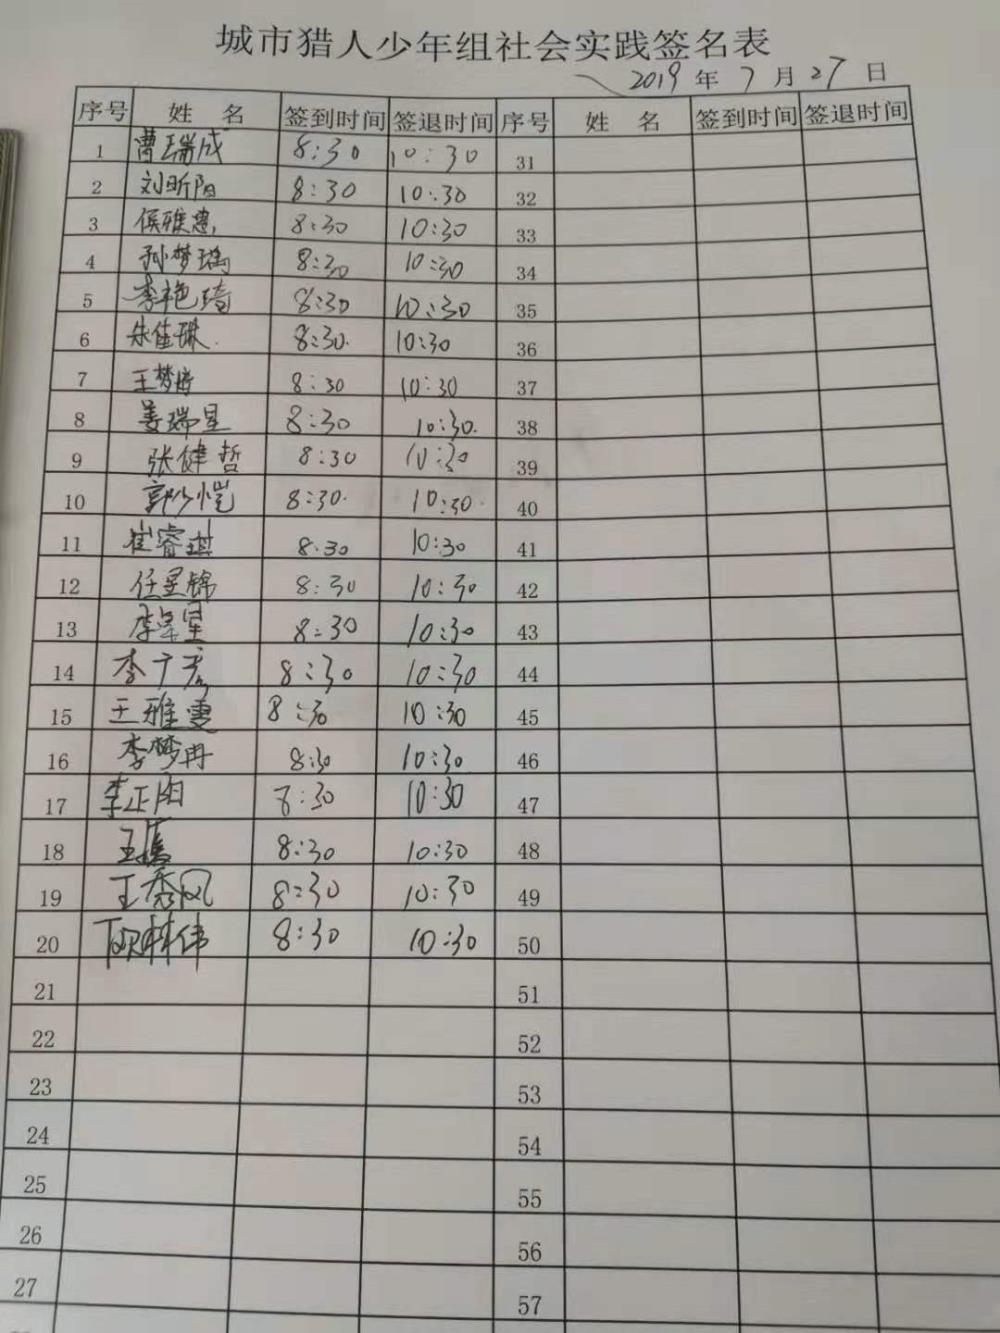 城市猎人少年组社会实践签名表
2019 年 7 月 27 日
序号 姓 名 签到时间 签退时间 序号 姓 名 签到时间 签退时间
1 曹瑞成 8:30 10:30 31
2 刘昕阳 8:30 10:30 32
3 侯雅惠 8:30 10:30 33
4 孙梦瑶 8:30 10:30 34
5 李艳琦 8:30 10:30 35
6 朱佳琳 8:30 10:30 36
7 王梦 8:30 10:30 37
8 姜瑞星 8:30 10:30 38
9 张健哲 8:30 10:30 39
10 郭 恺 8:30 10:30 40
11 崔睿琪 8:30 10:30 41
12 任星锦 8:30 10:30 42
13 李 星 8:30 10:30 43
14 李广彦 8:30 10:30 44
15 王雅雯 8:30 10:30 45
16 李梦冉 8:30 10:30 46
17 李正阳 8:30 10:30 47
18 王 8:30 10:30 48
19 王秀凤 8:30 10:30 49
20 林伟 8:30 10:30 50
21 51
22 52
23 53
24 54
25 55
26 56
27 57